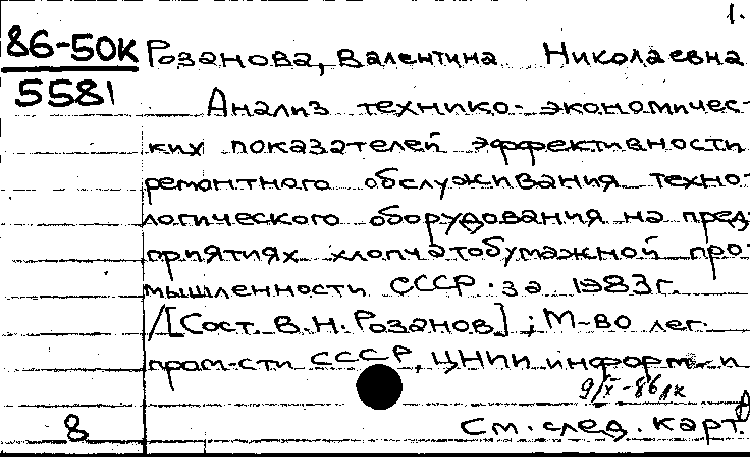 1.
86-50К Розанова, Валентина Николаевна
5581 Анализ технико-экономичес-
ких показателей эффективности
ремонтного обслуживания техно-
логического оборудования на пред-
приятиях хлопчатобумажной про-
мышленности СССР за 1983г.
/[Сост. В.Н. Розанов] ; М-во лег.
пром-сти СССР, ЦНИИ информ. и
9/X-86
8 См. след. карт.